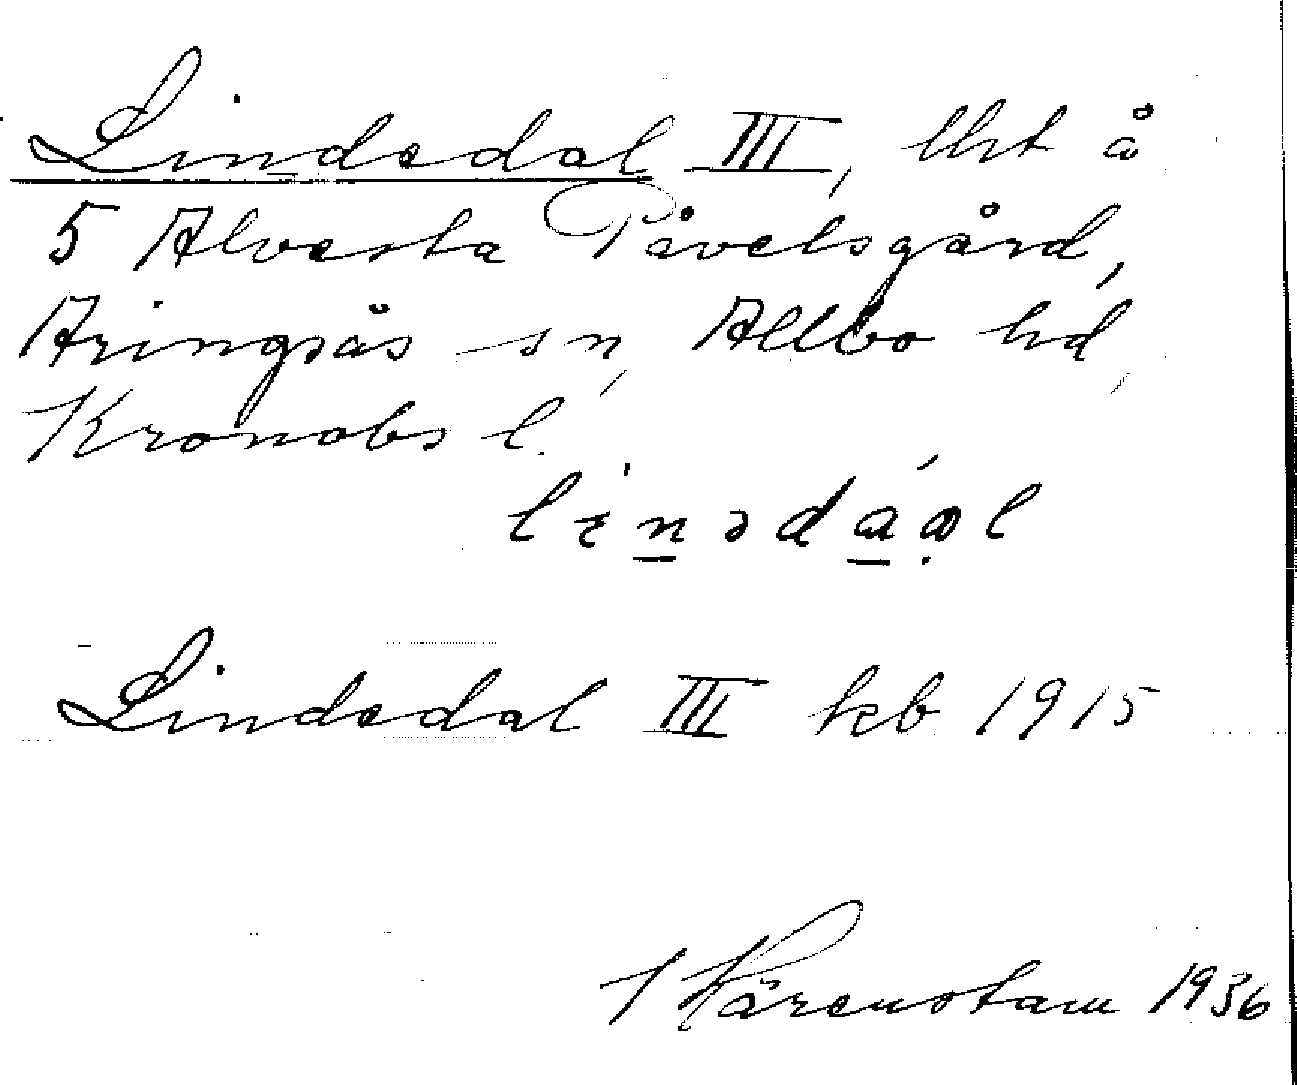 Lindsdal III, lht å
5 Alvesta Påvelsgård,
Aringsås sn, Allbo hd,
Kronobs l.
Lindsdal III kb 1915
Härenstam 1936